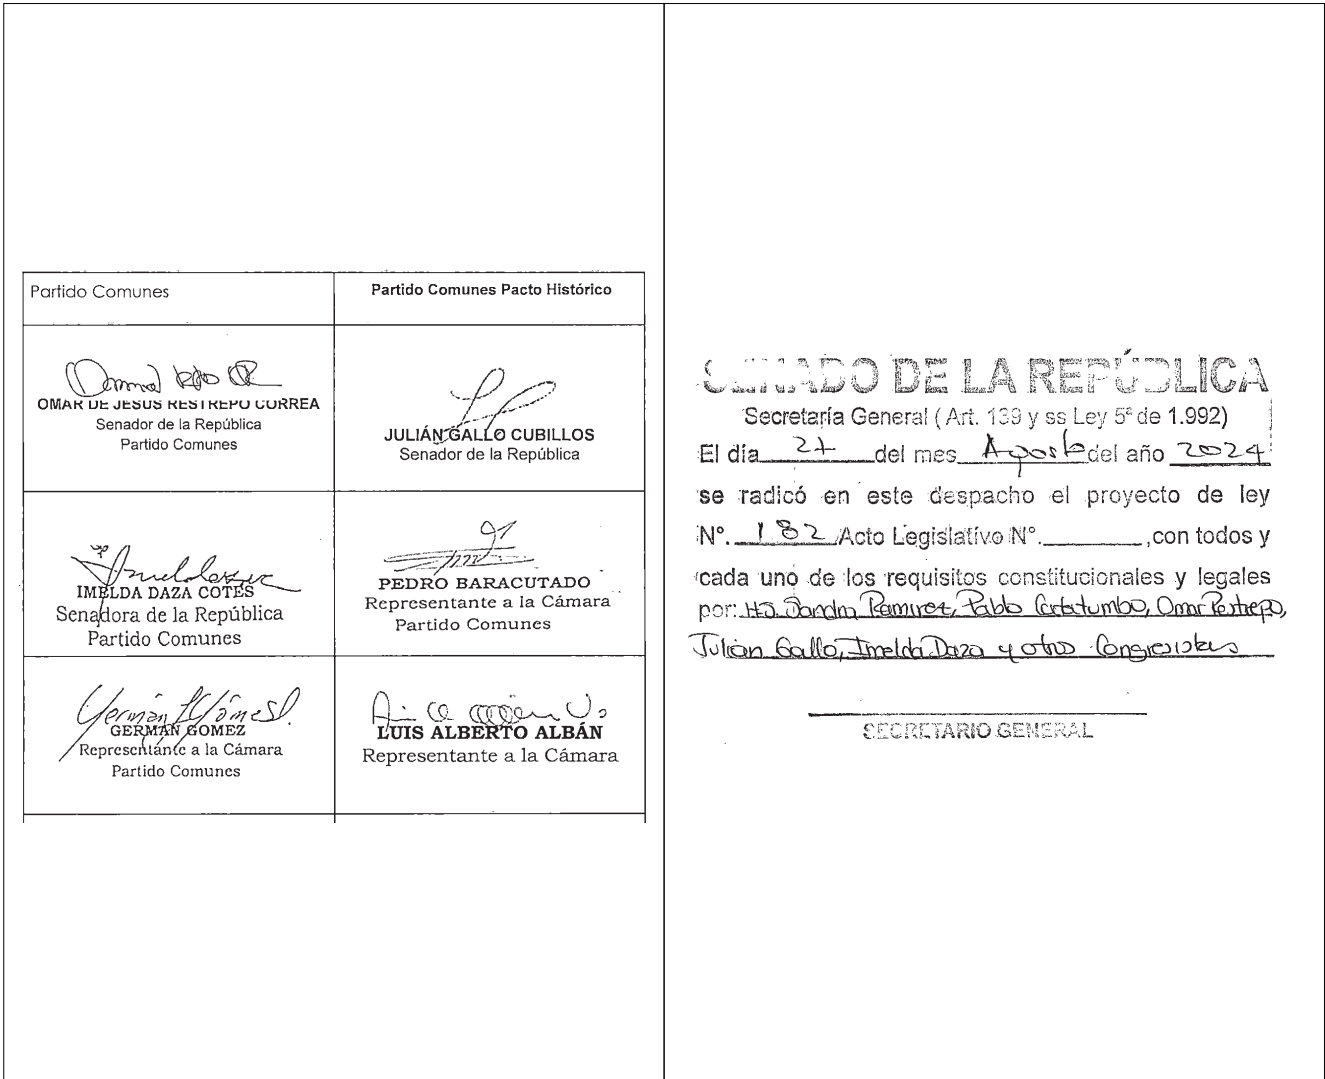 Partido Comunes
Partido Comunes Pacto Histórico
OMAR DE JESUS RESTREPO CORREA
Senador de la República
Partido Comunes
JULIÁN GALLO CUBILLOS
Senador de la República
IMELDA DAZA COTES
Senadora de la República
Partido Comunes
PEDRO BARACUTADO
Representante a la Cámara
Partido Comunes
GERMÁN GOMEZ
Representante a la Cámara
Partido Comunes
LUIS ALBERTO ALBÁN
Representante a la Cámara
SENADO DE LA REPÚBLICA
Secretaría General (Art. 139 y ss Ley 5ª de 1.992)
El día 27 del mes Agosto del año 2024
se radicó en este despacho el proyecto de ley
N°. 182 Acto Legislativo N°. ________ ,con todos y
cada uno de los requisitos constitucionales y legales
por: H.S. Sandra Ramirez, Pablo Catatumbo, Omar Restrepo,
Julian Gallo, Imelda Daza y otros Congresistas
SECRETARIO GENERAL